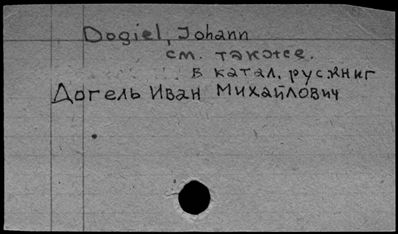 Dogiel, Johann
см. также.
в катал. рус.книг
Догель Иван Михайлович